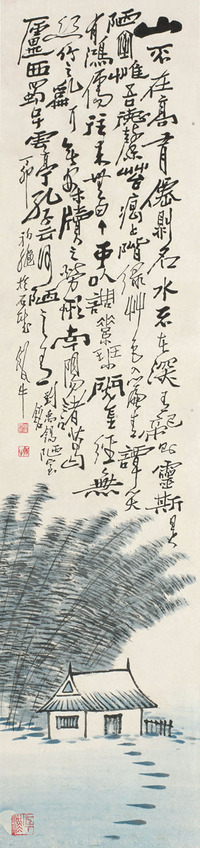 山不在高有僊則名水不在深有龍則靈斯是
陋室惟吾德馨苔痕上階綠草色入簾青譚笑
有鴻儒往來無白丁可以調素琴閱金經無
絲竹之亂耳無案牘之勞形南陽諸葛
廬西蜀子雲亭孔子云何陋之有
劉禹錫陋室
銘